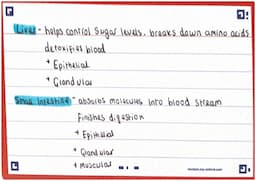 Liver - helps control sugar levels, breaks down amino acids
detoxifies blood
* Epithelial
* Glandular
Small Intestine - absorbs molecules into blood stream
Finishes digestion
* Epithelial
* Glandular
* Muscular